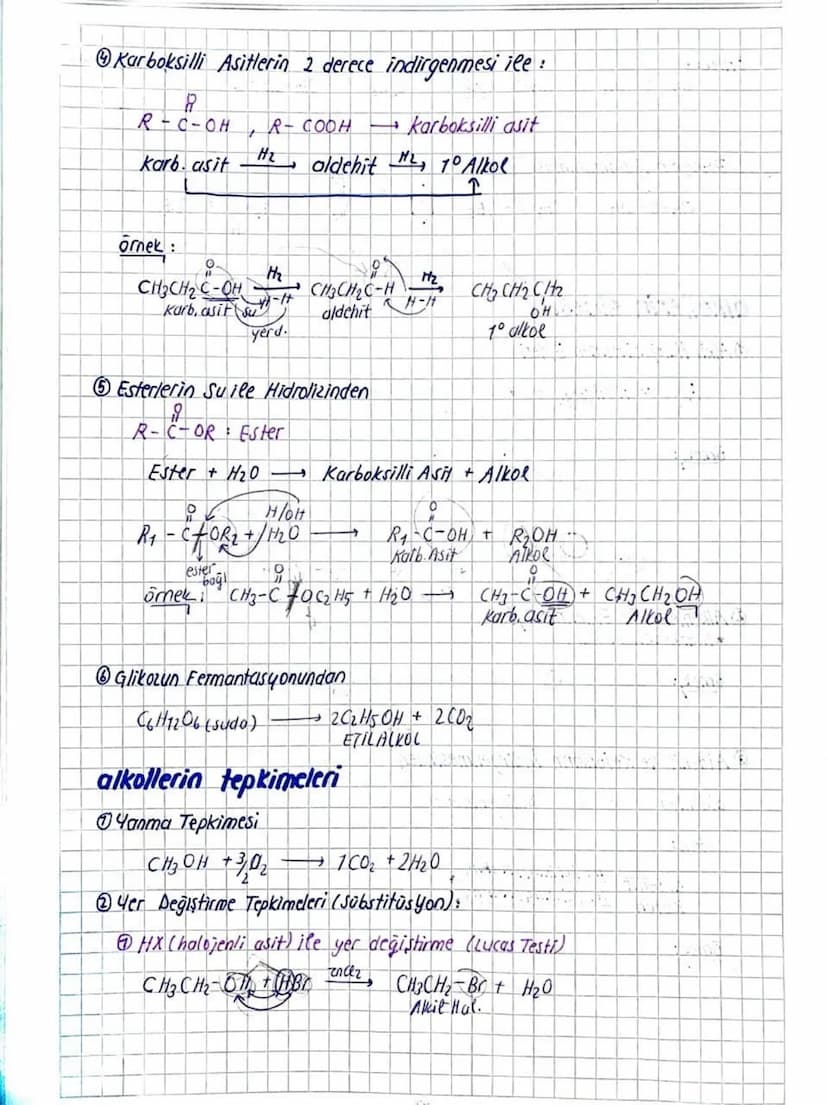 ④ Karboksilli Asitlerin 2 derece indirgenmesi ile :
O
R - C - OH , R - COOH → karboksilli asit
karb. asit H2→ aldehit H2→ 1° Alkol
örnek :
O O
CH3CH2C-OH H2→ CH3CH2C-H H2→ CH3CH2CH2
karb. asit su H-H aldehit H-H OH
yerd. 1° alkol
⑤ Esterlerin Su ile Hidrolizinden
O
R - C - OR : Ester
Ester + H2O → Karboksilli Asit + Alkol
O H/OH O
R1 - C - OR2 + H2O → R1 - C - OH + R2OH
Karb. Asit Alkol
ester bağı
O O
örnek ; CH3 - C - OC2H5 + H2O → CH3 - C - OH + CH3CH2OH
karb. asit Alkol
⑥ Glikozun Fermantasyonundan
C6H12O6 (suda) → 2C2H5OH + 2CO2
ETİLALKOL
alkollerin tepkimeleri
① Yanma Tepkimesi
CH3OH + 3/2O2 → 1CO2 + 2H2O
② Yer Değiştirme Tepkimeleri (Sübstitüsyon) :
① HX (halojenli asit) ile yer değiştirme (Lucas Testi)
CH3CH2 - OH + HBr ZnCl2→ CH3CH2 - Br + H2O
Alkil Hal.